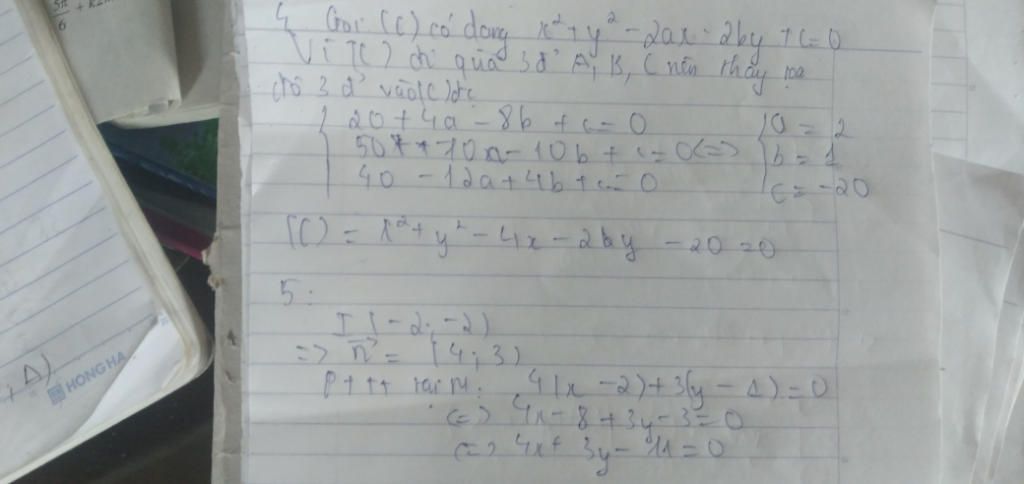 5π/6 + k2π
HONG HA
4 Gọi (C) có dạng x² + y² - 2ax - 2by + c = 0
Vì (C) đi qua 3 đ' A, B, C nên thay tọa
độ 3 đ' vào (C) đc
20 + 4a - 8b + c = 0
50 + 10a - 10b + c = 0 <=>
40 - 12a + 4b + c = 0
a = 2
b = 1
c = -20
(C) = x² + y² - 4x - 2by - 20 = 0
5:
I (-2; -2)
=> n⃗ = (4; 3)
Pttt tại M: 4(x - 2) + 3(y - 1) = 0
<=> 4x - 8 + 3y - 3 = 0
<=> 4x + 3y - 11 = 0